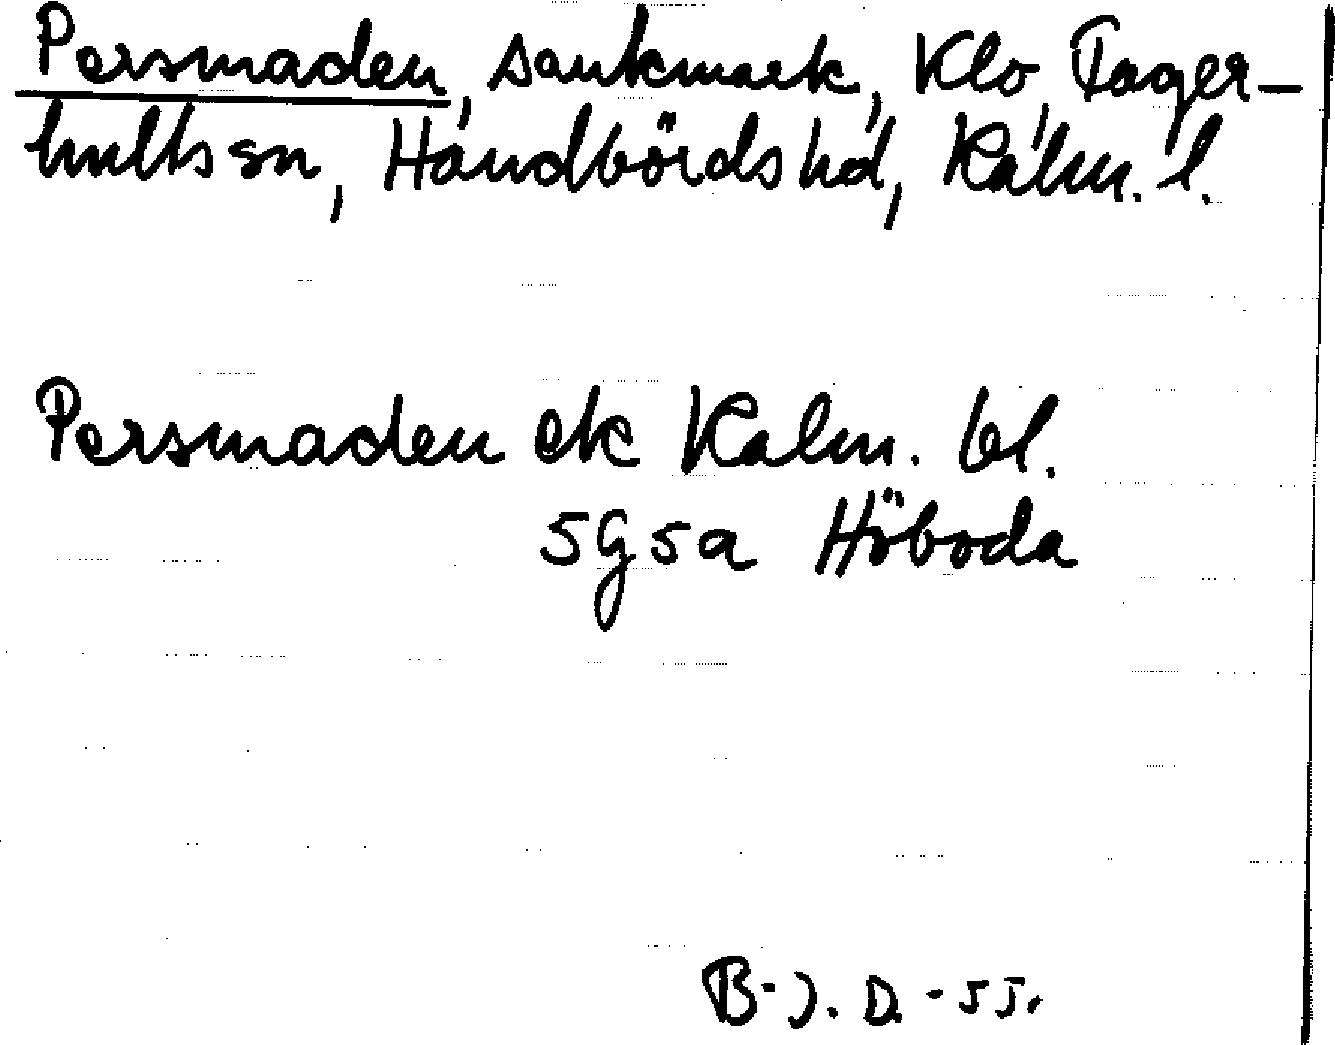 Persmaden, sankmark, Klo Fager-
hults sn, Handbörds hd, Kalm. l.
Persmaden ek Kalm. bl.
5G5a Höboda
B-J. D. -55.